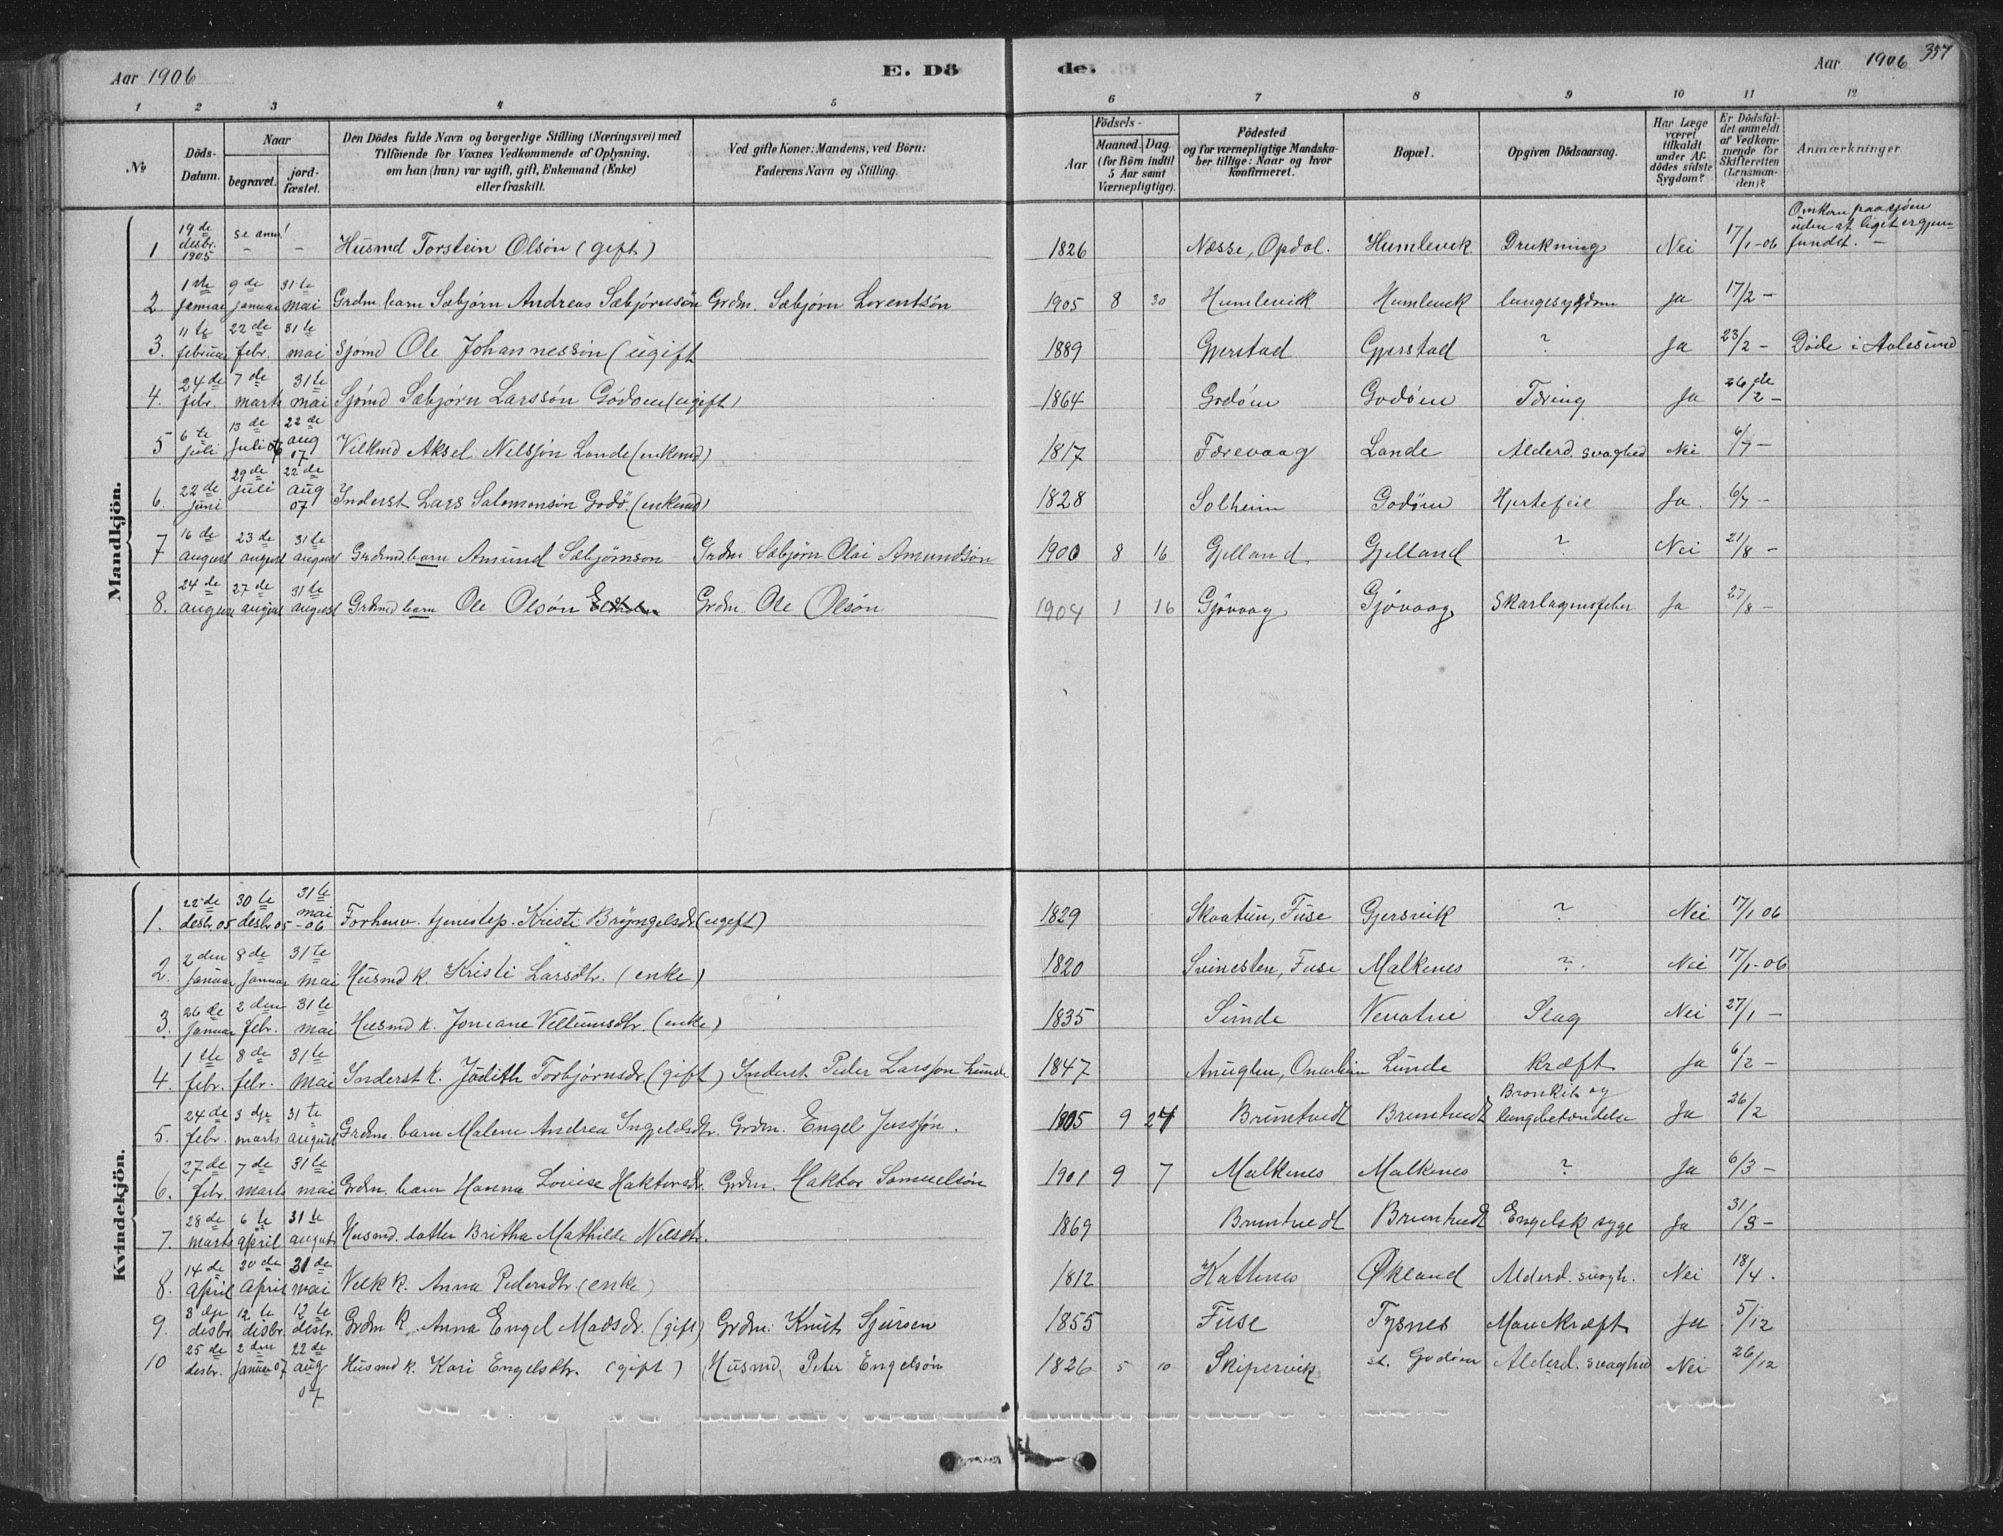 Aar 1906 E. Dö de. Aar 1906 357
1 2 3 4 5 6 7 8 9 10 11 12
No Döds-Datum. Naar begravet. jordfæstet. Den Dödes fulde Navn og borgerlige Stilling (Næringsvei) med Tilföiende for Voxnes Vedkommende af Oplysning, om han (hun) var ugift, gift, Enkemand (Enke) eller fraskilt. Ved gifte Koner: Mandens, ved Börn: Faderens Navn og Stilling. Födsels- Aar Maaned. Dag. (for Börn indtil 5 Aar samt Værnepligtige). Födested og for værnepligtige Mandskaber tillige: Naar og hvor konfirmeret. Bopæl. Opgiven Dödsaarsag. Har Læge været tilkaldt under Afdödes sidste Sygdom? Er Dödsfaldet anmeldt af Vedkommende for Skifteretten (Lensmanden)? Anmærkninger.
Mandkjön.
1 19de desbr. 1905 se anm! - - Husmd Torstein Olsön (gift) 1826 Næsse, Opdal. Humlevik Drukning Nei 17/1-06 Omkom paa sjöen uden at liget er gjenfundet. -
2. 1ste januar 9de januar 31te mai Grdm. barn Sæbjörn Andreas Sæbjörnsön Grdm. Sæbjörn Lorentsön 1905 8 30 Humlevik Humlevik lungesygdom Ja 17/2 -
3. 11te februar 22de febr. 31te mai Sjömd Ole Johannessön (ugift 1889 Gjerstad Gjerstad ? Ja 23/2 - Döde i Aalesund
4. 24de febr. 7de marts 31te mai Sjömd Sæbjörn Larssön Godöen (ugift) 1864 Godöen Godöen Tæring Ja 26de/2 -
5 6te juli 13de juli 06 22de aug 07 Vilkmd Aksel Nelssön Lande (enkemd) 1817 Færevaag Lande Alderd. svaghed Nei 6/7 -
6. 22de juni 29de juli 22de aug 07 Inderst Lars Salomonsön Godö. (enkemd) 1828 Solheim Godöen Hjertefeil Ja. 6/7 -
7 16de august 23de august 31te august Grdmd. barn Amund Sæbjörnson Grdm Sæbjörn Olai Amundsön 1900 8 16 Gjelland. Gjelland ? Nei 21/8 -
8. 24de august 27de august 31te august Grdmd barn Ole Olsön Grdm. Ole Olsön 1904 1 16 Gjövaag Gjövaag Skarlagensfeber Ja 27/8 -
Kvindekjön.
1. 22de desbr 05 30te desbr 05 31te mai -06 Forhenv. tjenestep. Kristi Bryngelsdr (ugift) 1829 Skaatun, Fuse Gjersvik ? Nei 17/1 06
2. 2den januar 8de januar 31te mai Husmd k. Kristi Larsdtr. (enke) 1820 Svinesten, Fuse Malkenes ? Nei 17/1-06
3. 26de januar 2den febr. 31te mai Husmd k. (enke) 1835 Sunde Slag Nei 27/1 -
4. 1ste febr. 8de febr. 31te mai Inderst k. Jödith Torbjörnsdr (gift) Inderst. Peder Larsson Lunde 1847 Anuglen, Onarheim Lunde kræft Ja 6/2 -
5. 24de febr. 3dje marts 31te august Grdm. barn Malene Andrea Ingjeldsdtr. Grdm. Engel Jenssön. 1905 9 24 Bruntvedt Bruntvedt Bronkit og lungebetændelse Ja 26/2
6. 27de febr. 7de marts 31te mai Grdm. barn Hanna Lovise Haktorsdr. Grdm. Haktor Samuelsön 1901 9 7 Malkenes Malkenes ? Ja 6/3 -
7. 28de marts 6te april 31te august Husmd. datter Britha Mathilde Nelsdtr. 1869 Bruntvedt Bruntvedt Engelsk syge Ja 31/3 -
8. 14de april 20de april 31de mai Vilk k. Anna Pedersdtr. (enke) 1812 Kattenes Økland Alderd. svagh. Nei 18/4.
9. 3dje desbr. 12te desbr. 12te desbr. Grdm k. Anna Engel Madsdr. (gift) Grdm. Knut Sjursen 1855 Fuse Tysnes Mavekræft Ja 5/12
10 25de desbr. 2den januar 07 22de aug 07 Husmd k. Kari Engelsdtr. (gift) Husmd. Peter Engelsön 1826 5 10 Skipervik st. Godöen Alderd. svaghed Nei 26/12